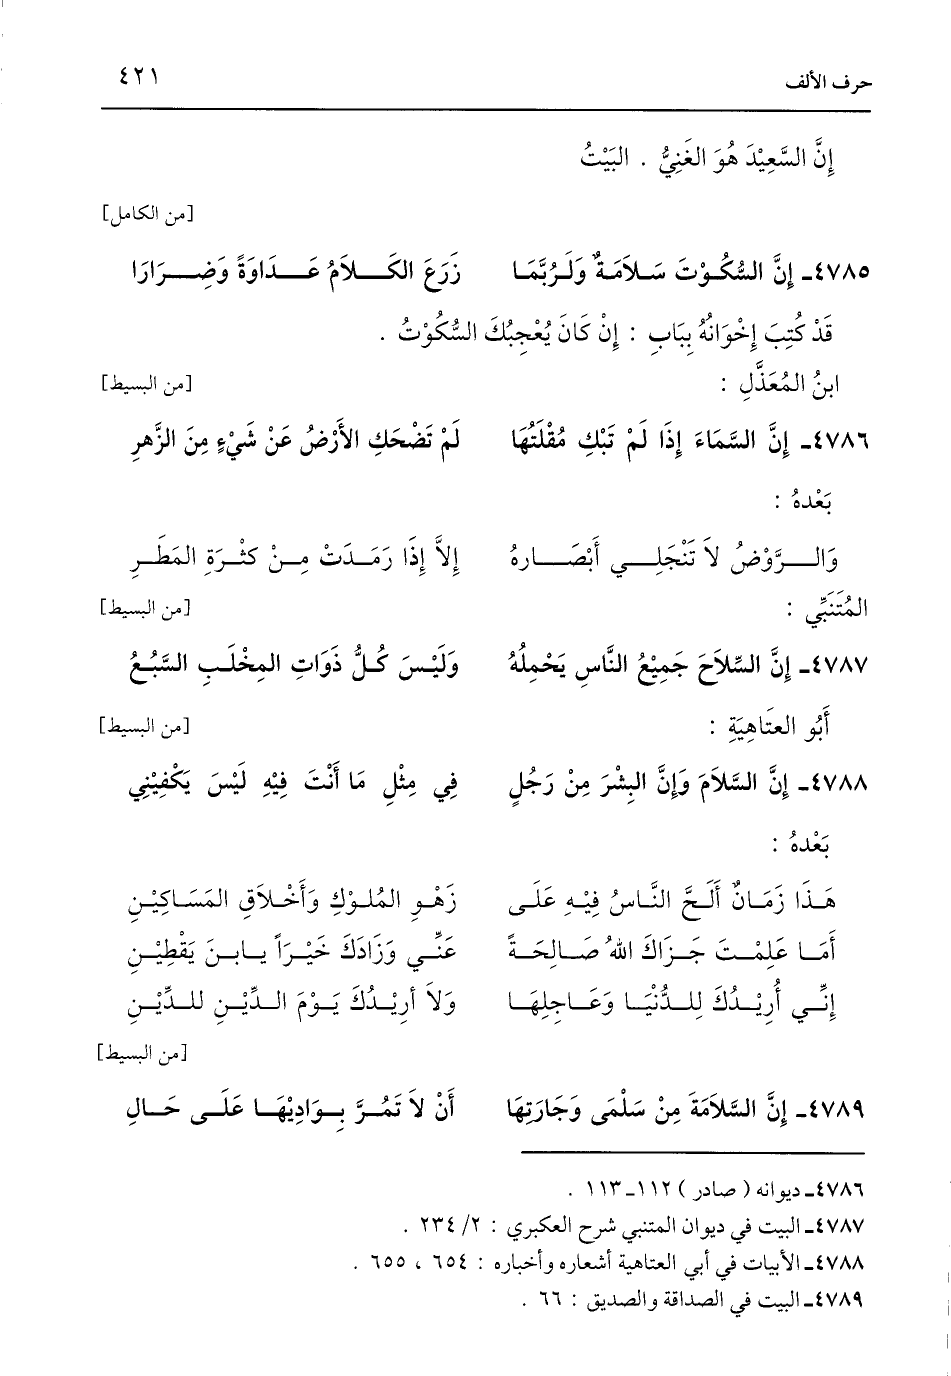 حرف الألف ٤٢١
إِنَّ السَّعِيْدَ هُوَ الغَنِيُّ . البَيْتُ
[من الكامل]
٤٧٨٥ـ إِنَّ السُّكُوْتَ سَلاَمَةٌ وَلَرُبَّمَا زَرَعَ الكَلاَمُ عَدَاوَةً وَضِرَارَا
قَدْ كُتِبَ إِخْوَانُهُ بِبَابِ : إِنْ كَانَ يُعْجِبُكَ السُّكُوْتُ .
ابنُ المُعَذَّلِ : [من البسيط]
٤٧٨٦ـ إِنَّ السَّمَاءَ إِذَا لَمْ تَبْكِ مُقْلَتُهَا لَمْ تَضْحَكِ الأَرْضُ عَنْ شَيْءٍ مِنَ الزَّهرِ
بَعْدهُ :
وَالرَّوْضُ لاَ تَنْجَلِي أَبْصَارهُ إِلاَّ إِذَا رَمَدَتْ مِنْ كثْرَةِ المَطَرِ
المُتَنَبِّي : [من البسيط]
٤٧٨٧ـ إِنَّ السِّلاَحَ جَمِيْعُ النَّاسِ يَحْمِلُهُ وَلَيْسَ كُلُّ ذَوَاتِ المِخْلَبِ السَّبُعُ
أَبُو العتَاهِيَةِ : [من البسيط]
٤٧٨٨ـ إِنَّ السَّلاَمَ وَإِنَّ البِشْرَ مِنْ رَجُلٍ فِي مِثْلِ مَا أَنْتَ فِيْهِ لَيْسَ يَكْفِيْنِي
بَعْدهُ :
هَذَا زَمَانٌ أَلَحَّ النَّاسُ فِيْهِ عَلَى زَهْوِ المُلُوْكِ وَأَخْلاَقِ المَسَاكِيْنِ
أَمَا عَلِمْتَ جَزَاكَ اللهُ صَالِحَةً عَنِّي وَزَادَكَ خَيْرَاً يابنَ يَقْطِيْنِ
إِنِّي أُرِيْدُكَ لِلدُّنْيَا وَعَاجِلِهَا وَلاَ أرِيْدُكَ يَوْمَ الدِّيْنِ للدِّيْنِ
[من البسيط]
٤٧٨٩ـ إِنَّ السَّلاَمَةَ مِنْ سَلْمَى وَجَارَتِهَا أَنْ لاَ تَمُرَّ بِوَادِيْهَا عَلَى حَالِ
٤٧٨٦ـ ديوانه ( صادر ) ١١٢ـ١١٣ .
٤٧٨٧ـ البيت في ديوان المتنبي شرح العكبري : ٢/ ٢٣٤ .
٤٧٨٨ـ الأبيات في أبي العتاهية أشعاره وأخباره : ٦٥٤ ، ٦٥٥ .
٤٧٨٩ـ البيت في الصداقة والصديق : ٦٦ .